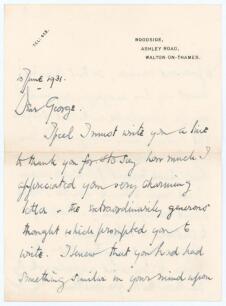 TEL: 623.
WOODSIDE,
ASHLEY ROAD,
WALTON-ON-THAMES.
15 June 1931.
Dear George.
I feel I must write you a line
to thank you for & to say how much I
appreciated your very charming
letter & the extraordinarily generous
thought which prompted you to
write. I knew that you had had
something similar in your mind upon